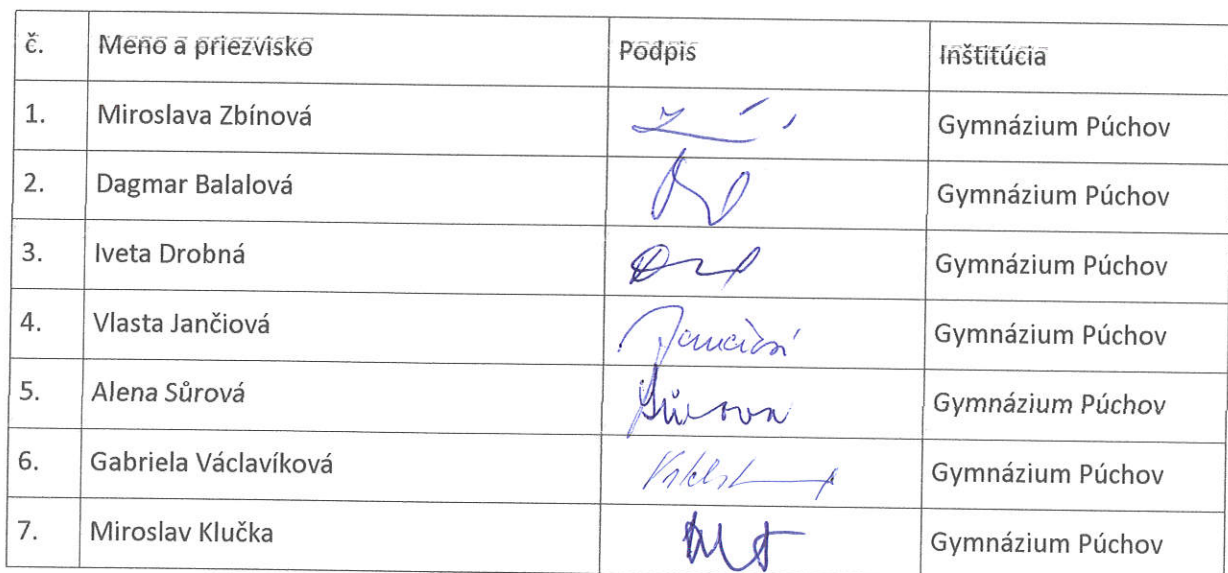 č. Meno a priezvisko Podpis Inštitúcia
1. Miroslava Zbínová Gymnázium Púchov
2. Dagmar Balalová Gymnázium Púchov
3. Iveta Drobná Gymnázium Púchov
4. Vlasta Jančiová Gymnázium Púchov
5. Alena Sůrová Sůrova Gymnázium Púchov
6. Gabriela Václavíková Gymnázium Púchov
7. Miroslav Klučka Gymnázium Púchov